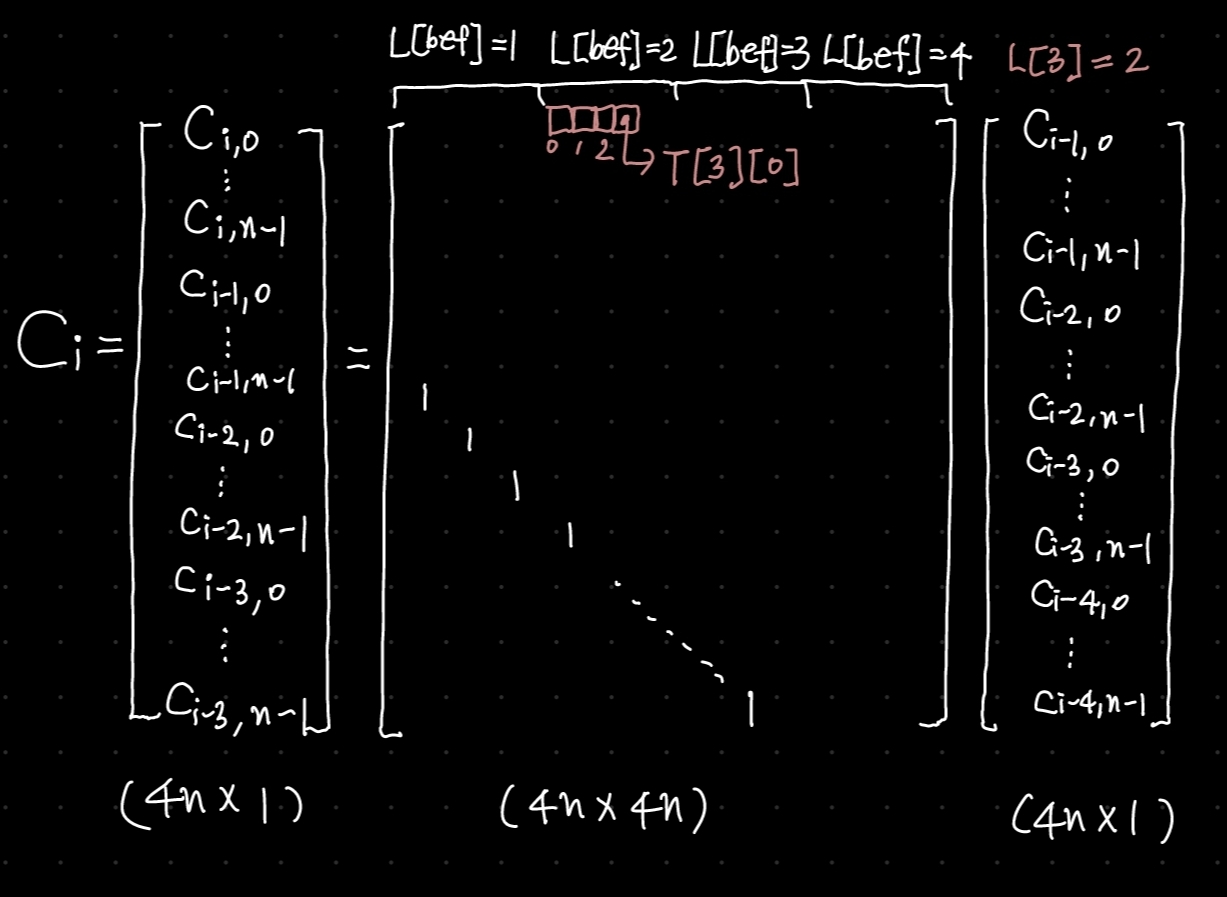 L[bef]=1 L[bef]=2 L[bef]=3 L[bef]=4 L[3]=2
0 1 2 T[3][0]
Ci =
Ci,0
⋮
Ci,n-1
Ci-1,0
⋮
Ci-1,n-1
Ci-2,0
⋮
Ci-2,n-1
Ci-3,0
⋮
Ci-3,n-1
=
1
1
1
1
1
Ci-1,0
⋮
Ci-1,n-1
Ci-2,0
⋮
Ci-2,n-1
Ci-3,0
⋮
Ci-3,n-1
Ci-4,0
⋮
Ci-4,n-1
(4n×1) (4n×4n) (4n×1)